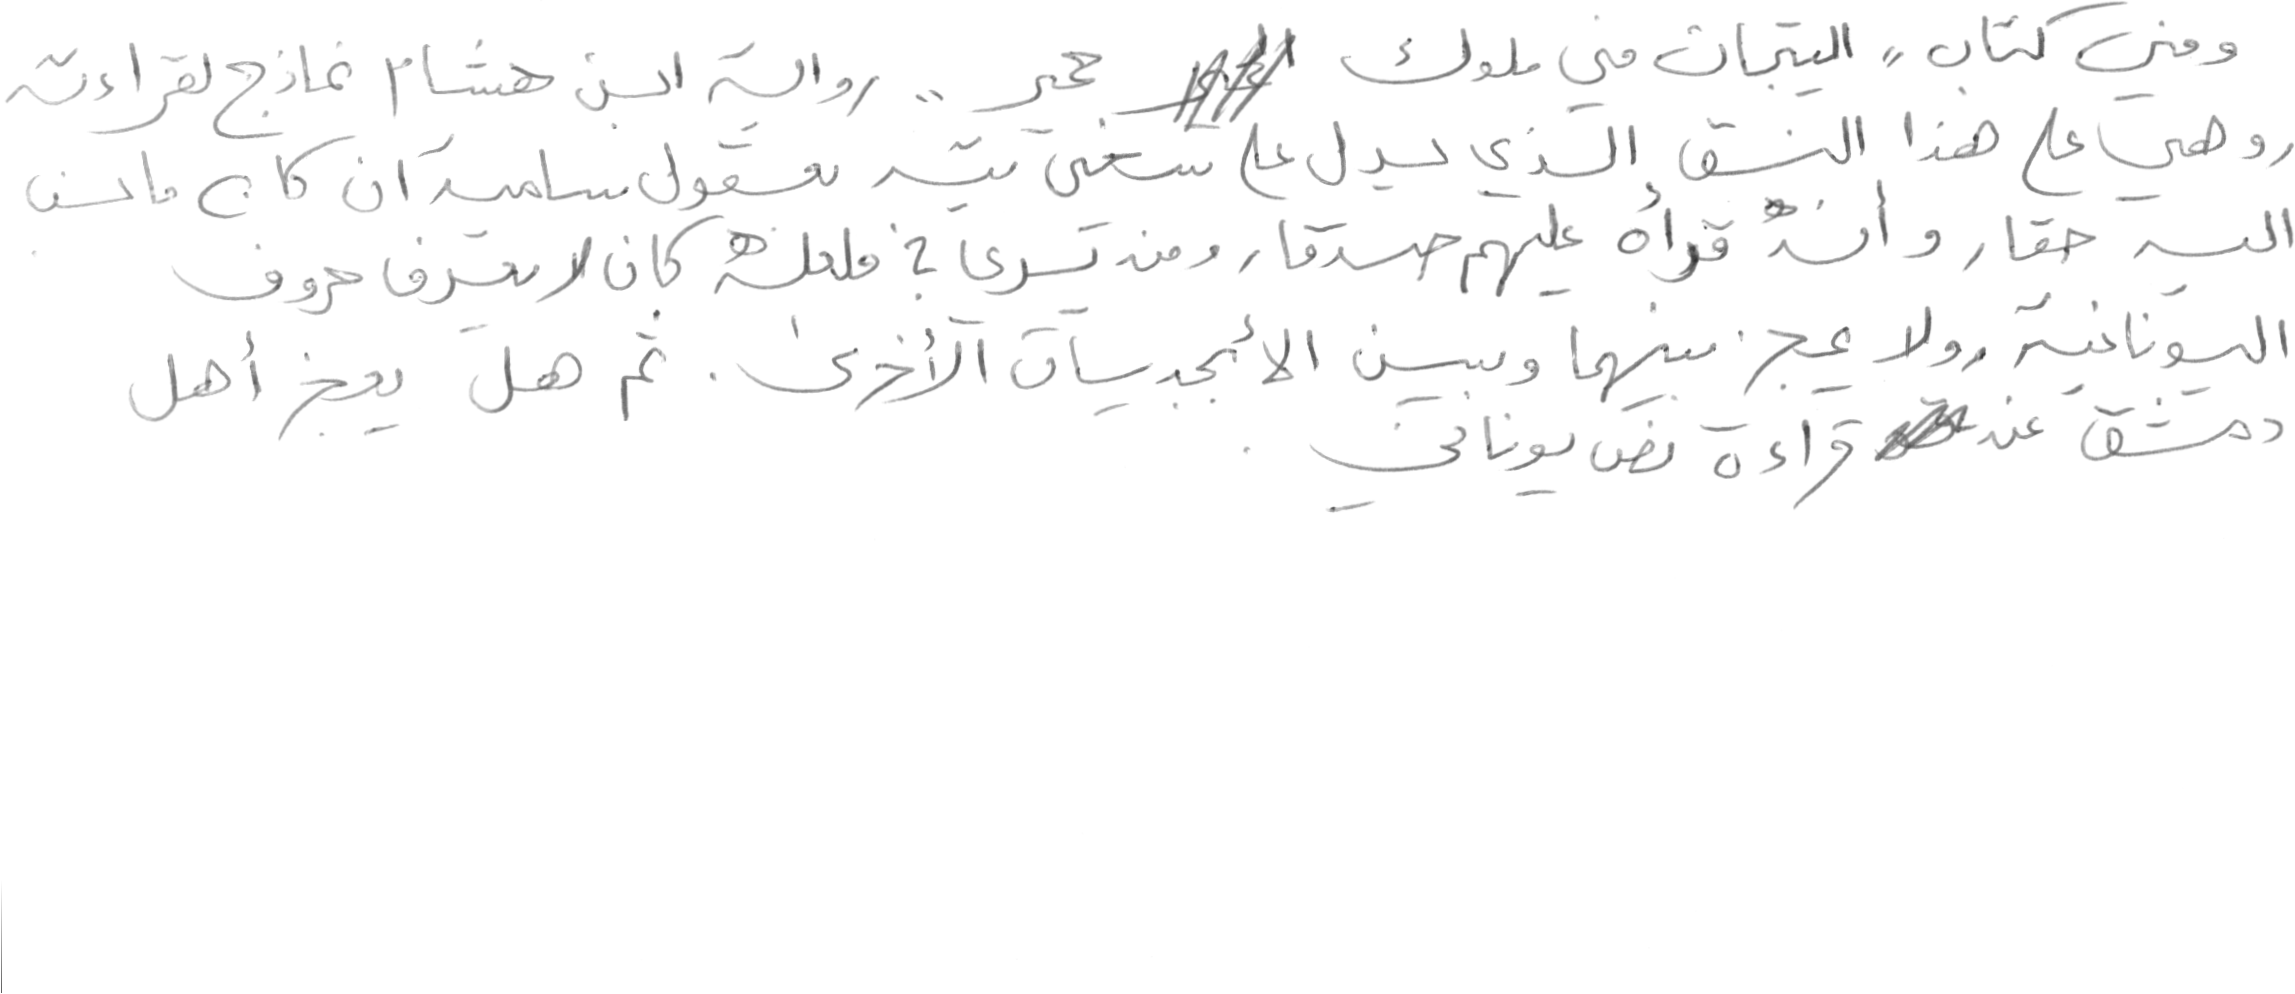 وفي كتاب "التيجان في ملوك حمير" رواية ابن هشام نماذج لقراءته
، وهي على هذا النسق الذي يدل على سخريته بعقول سامعيه آن كان ما نسب
اليه حقا، وأنه قرأه عليهم صدقا، ومن ترى؟ فلعله كان لا يعرف حروف
اليونانية، ولا يميز بينها وبين الأبجديات الأخرى. ثم هل يعجز أهل
دمشق عن قراءة نص يوناني.